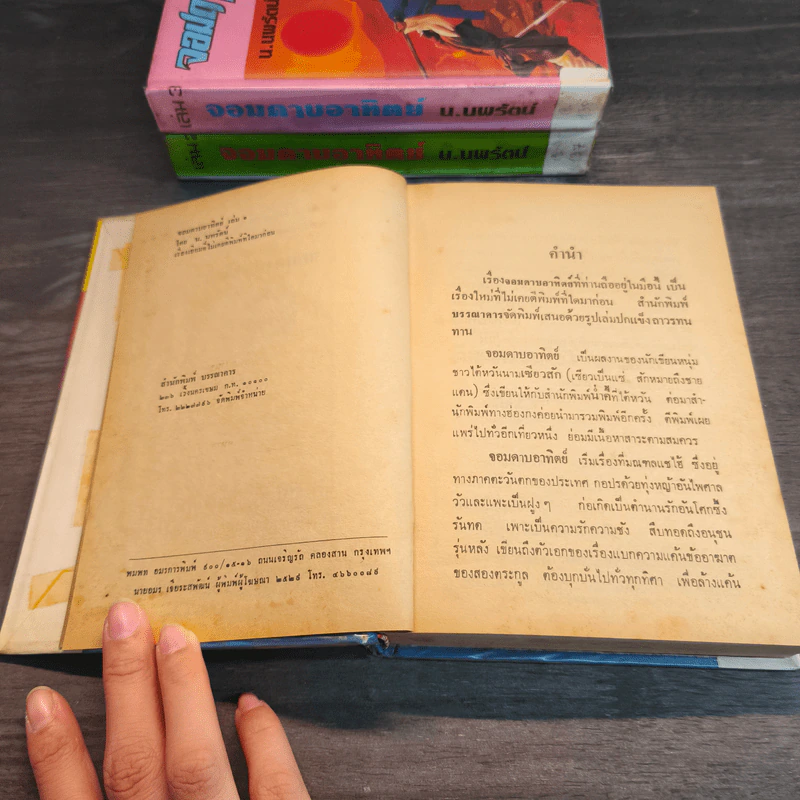 จอมดา
น.นพรัตน์
เล่ม 3 จอมดาบอาทิตย์ น.นพรัตน์
เล่ม 2 จอมดาบอาทิตย์ น.นพรัตน์
จอมดาบอาทิตย์ เล่ม ๑
โดย น. นพรัตน์
เรื่องเขียนที่ไม่เคยตีพิมพ์ที่ใดมาก่อน
สำนักพิมพ์ บรรณาคาร
๒๐๖ เวิ้งนครเขษม ก.ท. ๑๐๑๐๐
โทร. ๒๒๑๗๘๕๖ จัดพิมพ์จำหน่าย
พิมพ์ที่ อมรการพิมพ์ ๙๐๐/๑๕-๑๖ ถนนเจริญรัถ คลองสาน กรุงเทพฯ
นายอมร เจียระสพัฒน์ ผู้พิมพ์ผู้โฆษณา ๒๕๒๕ โทร. ๔๖๖๐๐๘๙
คำนำ
เรื่องจอมดาบอาทิตย์ที่ท่านถืออยู่ในมือนี้ เป็น
เรื่องใหม่ที่ไม่เคยตีพิมพ์ที่ใดมาก่อน สำนักพิมพ์
บรรณาคารจัดพิมพ์เสนอด้วยรูปเล่มปกแข็งถาวรทน
ทาน
จอมดาบอาทิตย์ เป็นผลงานของนักเขียนหนุ่ม
ชาวไต้หวันนามเซียวสัก (เซียวเป็นแซ่ สักหมายถึงชาย
แดน) ซึ่งเขียนให้กับสำนักพิมพ์น่ำคี้ที่ไต้หวัน ต่อมาสำ-
นักพิมพ์ทางฮ่องกงค่อยนำมารวมพิมพ์อีกครั้ง ตีพิมพ์เผย
แพร่ไปทั่วอีกเที่ยวหนึ่ง ย่อมมีเนื้อหาสาระตามสมควร
จอมดาบอาทิตย์ เริ่มเรื่องที่มณฑลแชไฮ้ ซึ่งอยู่
ทางภาคตะวันตกของประเทศ กอปรด้วยทุ่งหญ้าอันไพศาล
วัวและแพะเป็นฝูง ๆ ก่อเกิดเป็นตำนานรักอันโศกซึ้ง
รันทด เพาะเป็นความรักความชัง สืบทอดถึงอนุชน
รุ่นหลัง เขียนถึงตัวเอกของเรื่องแบกความแค้นข้ออาฆาต
ของสองตระกูล ต้องบุกบั่นไปทั่วทุกทิศา เพื่อล้างแค้น